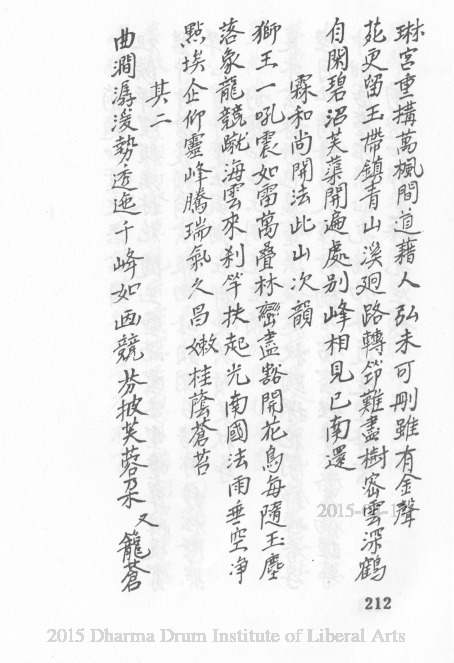 琳宮重搆萬楓間道藉人弘未可刪雖有金聲
苑更留玉帶鎮青山溪廻路轉筇難盡樹密雲深鶴
自閑碧沼芙蕖開遍處別峰相見已南還
霖和尚開法此山次韻
獅王一吼震如雷萬疊林巒盡豁開花鳥每隨玉麈
落象龍競蹴海雲來剎竿扶起光南國法雨垂空净
點埃企仰靈峰騰瑞氣久昌嫩桂蔭蒼苔
其二
曲澗潺湲勢透迤千峰如画競芬披芙蓉朵又籠蒼
2015-
212
2015 Dharma Drum Institute of Liberal Arts